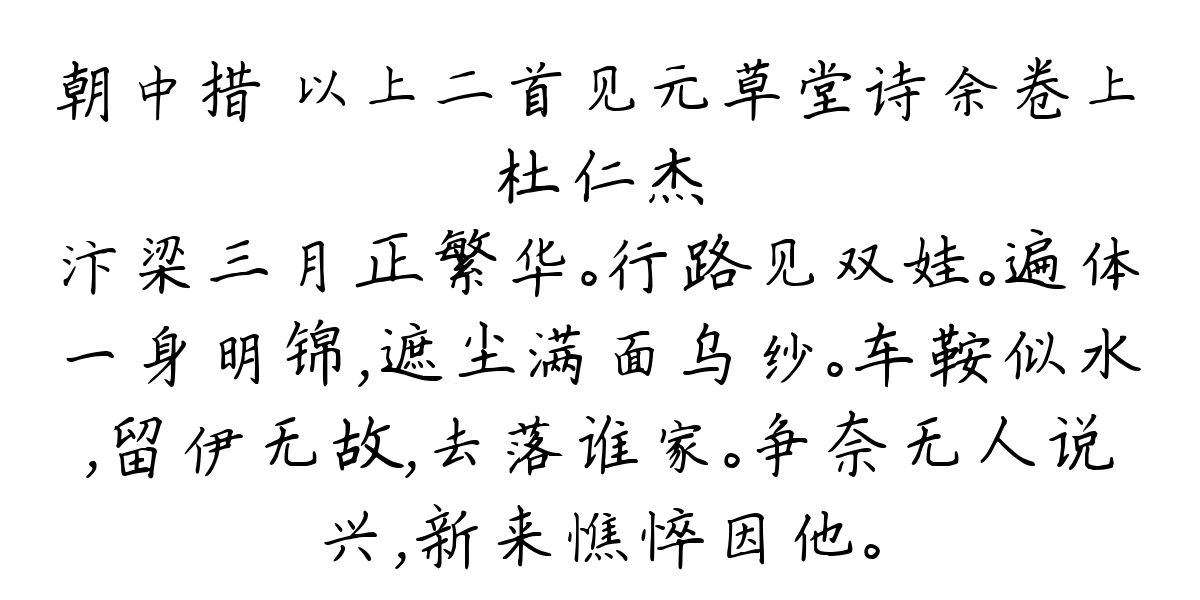 朝中措 以上二首见元草堂诗余卷上
杜仁杰
汴梁三月正繁华。行路见双娃。遍体
一身明锦,遮尘满面乌纱。车鞍似水
,留伊无故,去落谁家。争奈无人说
兴,新来憔悴因他。